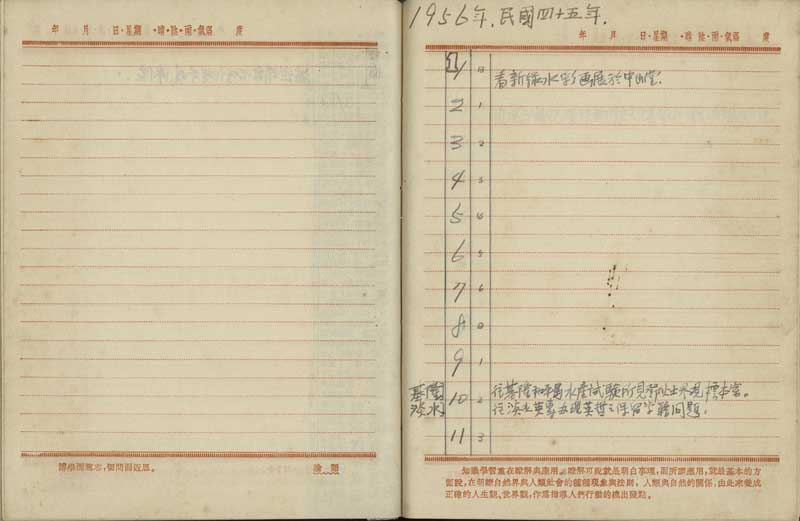 年 月 日·星期 ·晴·陰·雨·氣溫 度
博學而篤志,切問而近思。
論 語
1956年. 民國四十五年.
年 月 日·星期 ·晴·陰·雨·氣溫 度
1 日 看新綠水彩画展於中山堂.
2 1
3 2
4 3
5 4
6 5
7 6
8 日
9 1
基隆 10 2 往基隆和平島水產試驗所見鄧火土
淡水 往淡水英專
11 3
知識學習重在瞭解與應用。瞭解可說就是明白事理,而所謂應用,就最基本的方
面說,在明瞭自然界與人類社會的種種現象與法則,人類與自然的關係,由此來養成
正確的人生觀、世界觀,作為指導人們行動的總出發點。